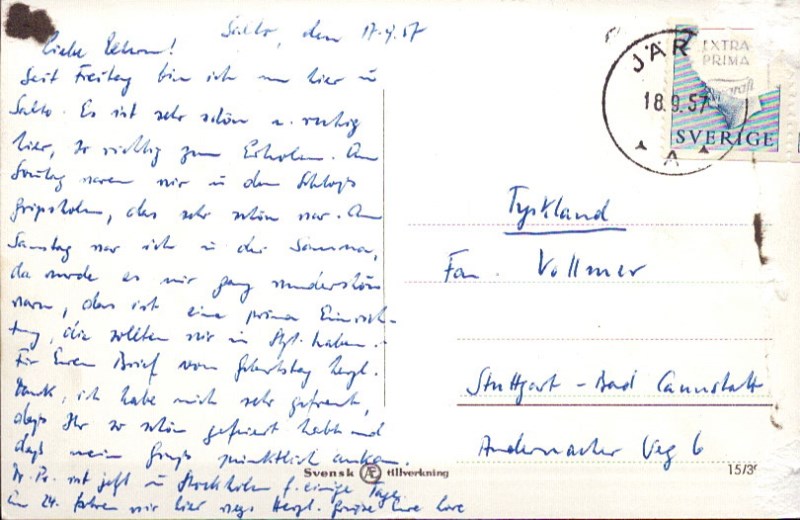 Salto, den 17.9.57
Liebe Eltern!
Seit Freitag bin ich nun hier in
Salto. Es ist sehr schön u. ruhig
hier, so richtig zum Erholen. Am
Sonntag waren wir in dem Schloß
Gripsholm, das sehr schön war. Am
Samstag war ich in der Sauna,
da wurde es mir ganz wunderschön
warm, das ist eine prima Einrich-
tung, die sollten wir in Stgt. haben.
Für Euren Brief vom Geburtstag herzl.
Dank, ich habe mich sehr gefreut,
daß Ihr so schön gefeiert habt und
daß mein Gruß pünktlich ankam.
ist jetzt in Stockholm f. einige Tage,
am 24. fahren wir hier weg. Herzl. Grüße Eure
JÄR
18.9.57
A
EXTRA
PRIMA
SVERIGE
Tyskland
Fam. Vollmer
Stuttgart - Bad Cannstatt
Andernacher Weg 6
Svensk Æ tillverkning